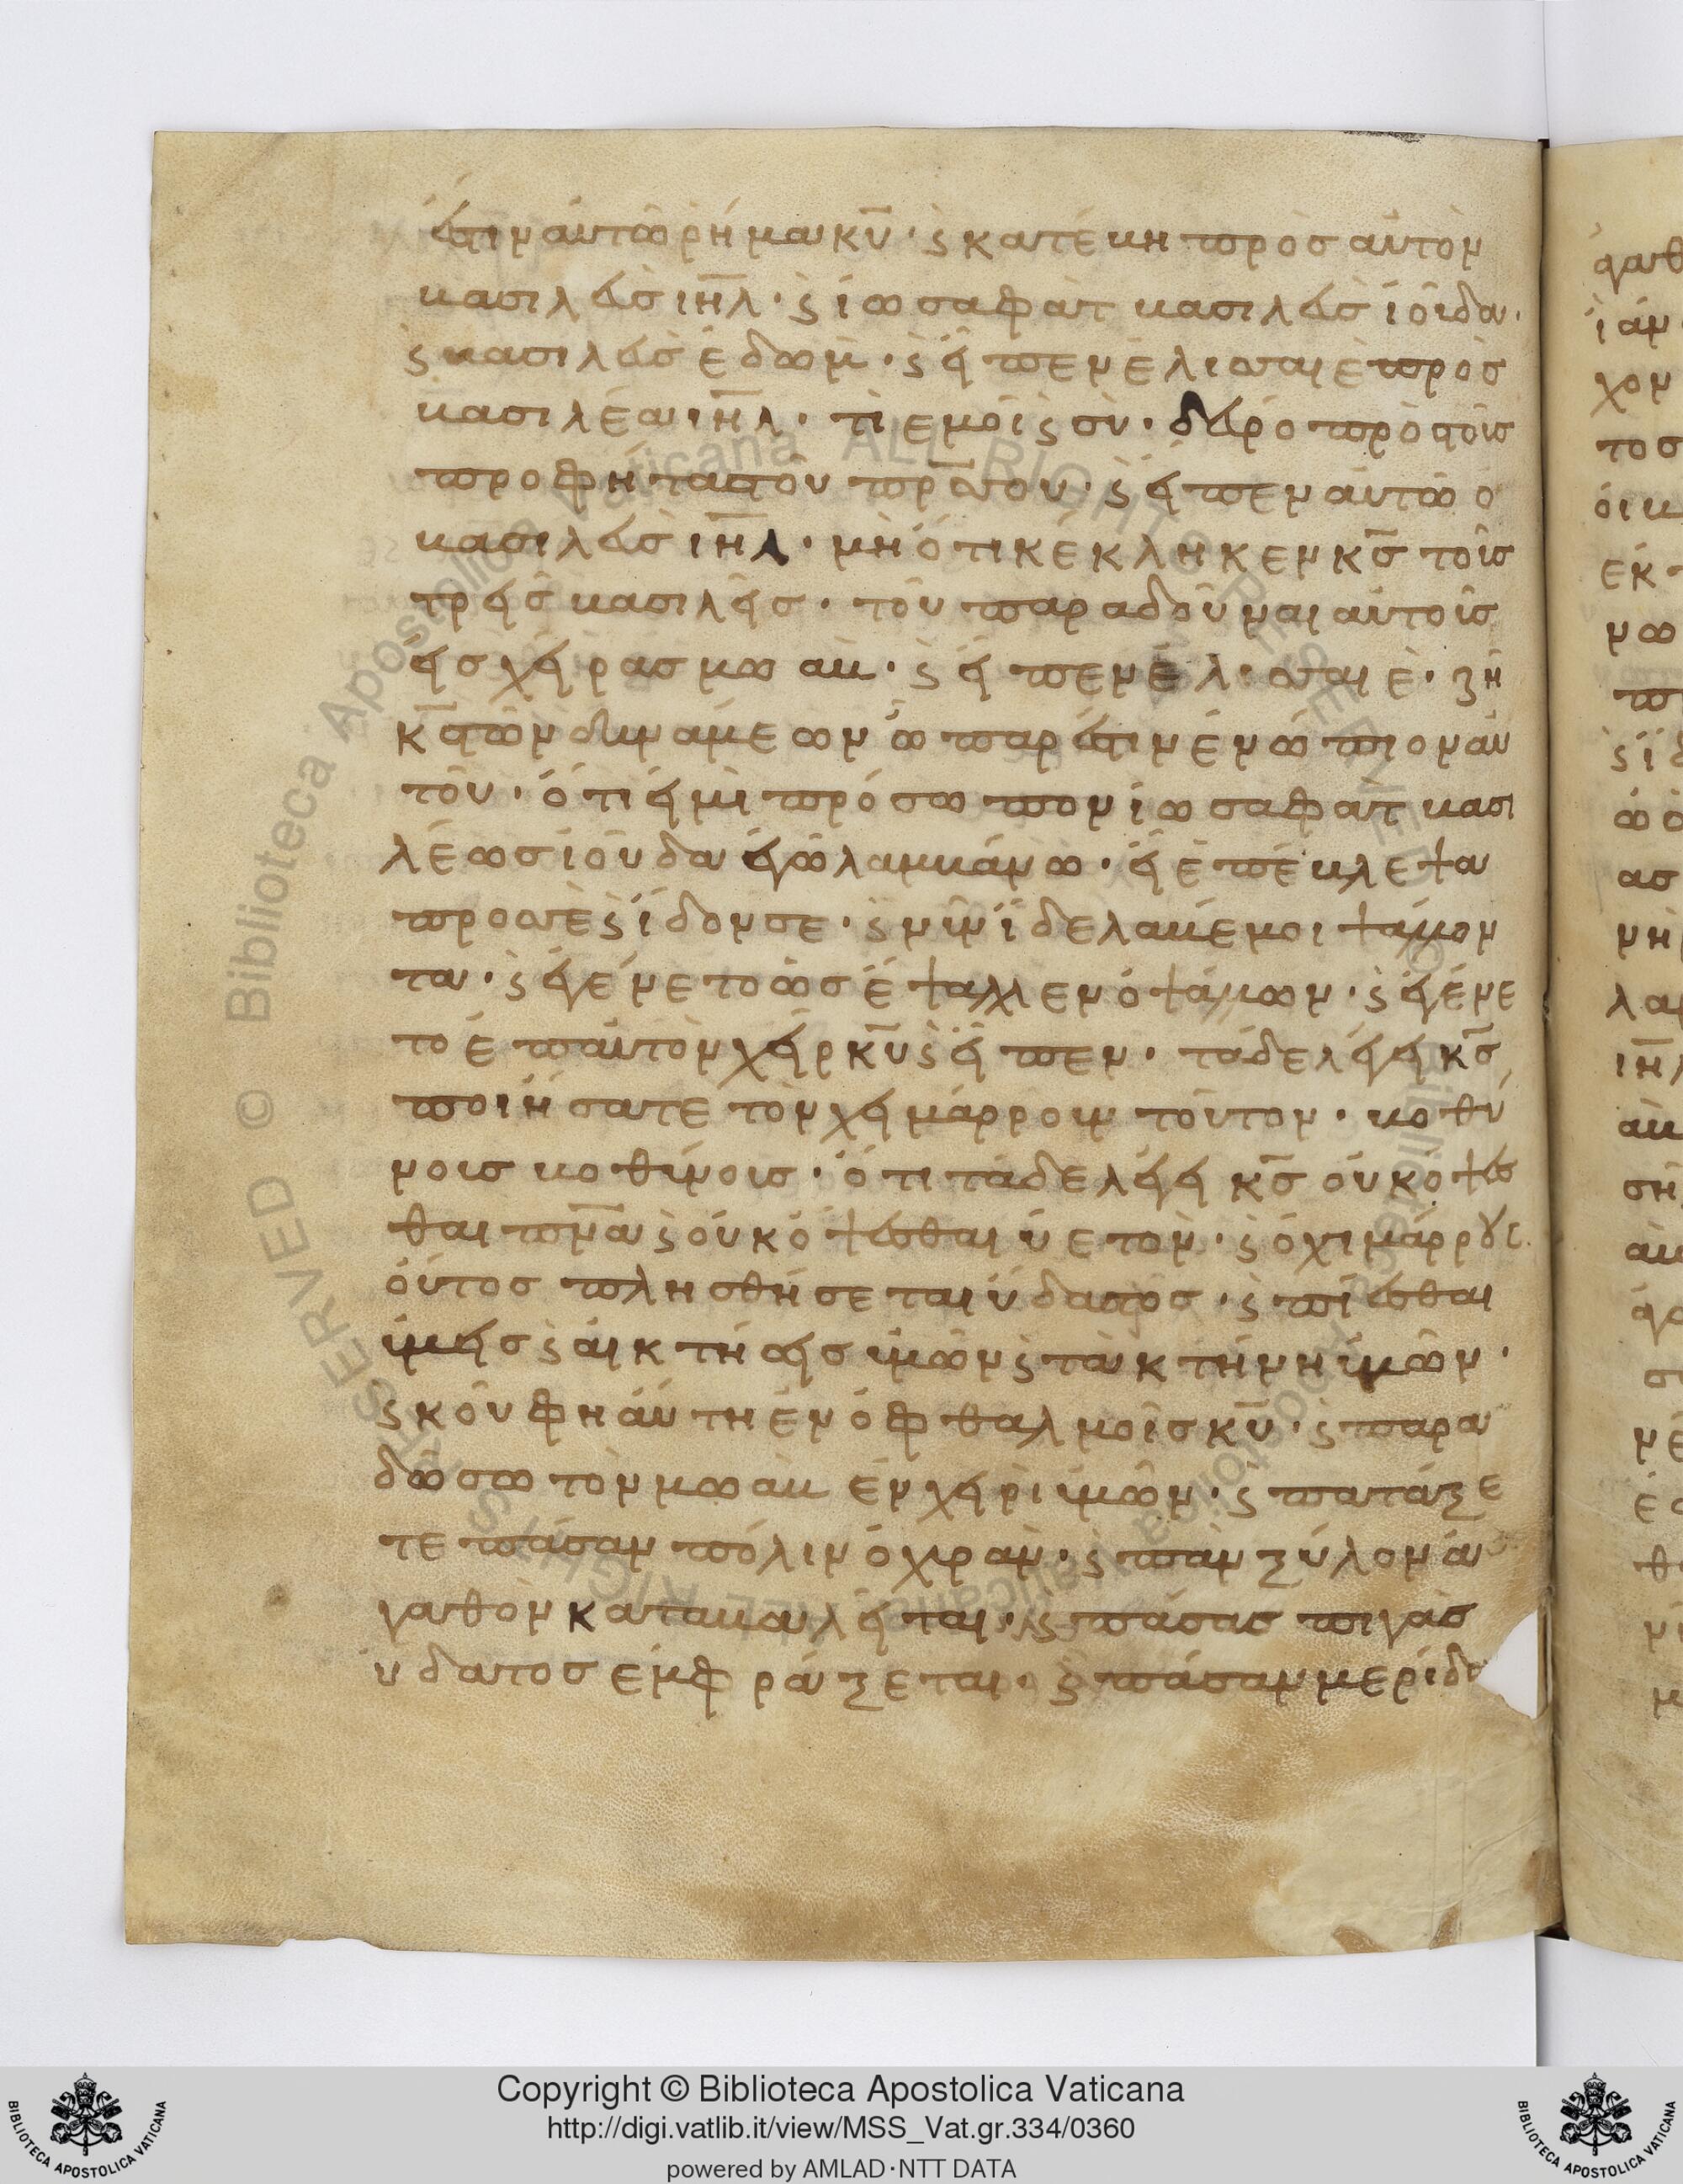 ἔστιν αὐτῶ ῥῆμα κ̅υ̅· ϛ κατέβη πρὸσ αὐτὸν
βασιλεὺσ ι̅η̅λ̅· ϛ ἰωσαφὰτ βασιλεὺσ ἰούδα·
ϛ βασιλεὺσ ἐδὼμ· ϛ εἶπεν ἐλισσαιὲ πρὸσ
βασιλέα ι̅η̅λ̅· τί ἐμοὶ ϛ σὺ· δεῦρο πρὸσ τοὺσ
προφήτασ τοῦ π̅ρ̅σ̅ σου· ϛ εἶπεν αὐτῶ ὁ
βασιλεὺσ ι̅η̅λ̅· μὴ ὅτι κέκληκεν κ̅σ̅ τοὺσ
τρεῖσ βασιλεῖσ· τοῦ παραδοῦναι αὐτοὺσ
εἰσ χεῖρασ μωαβ· ϛ εἶπεν ἐλισσαιὲ· ζῆ
κ̅σ̅ τῶν δυνάμεων ὧ παρέστην ἐνώπιον αὐ
τοῦ· ὅτι εἰ μὴ πρόσωπον ἰωσαφὰτ βασι
λέωσ ἰούδα ἐγὼ λαμβάνω· εἰ ἐπέβλεψα
πρὸσ σὲ ϛ ἴδον σε· ϛ νῦν ἴδε λαβέ μοι ψάλλον
τα· ϛ ἐγένετο ὡσ ἔψαλλεν ὁ ψάλλων· ϛ ἐγένε
το ἐπ αὐτὸν χεὶρ κ̅υ̅ ϛ εἶπεν· τάδε λέγει κ̅σ̅
ποιήσατε τὸν χειμάρρουν τοῦτον· βοθύ
νουσ βοθύνουσ· ὅτι τάδε λέγει κ̅σ̅ οὐκ ὄψεσ
θαι π̅ν̅α̅ ϛ οὐκ ὄψεσθαι ὑετὸν· ϛ ὁ χιμάρρουσ
οὗτοσ πλησθήσεται ὕδατοσ· ϛ πίεσθαι
ὑμεῖσ ϛ αἱ κτήσεισ ὑμῶν ϛ τὰ κτήνη ὑμῶν·
ϛ κούφη αὕτη ἐν ὀφθαλμοῖσ κ̅υ̅· ϛ παρα
δώσω τὸν μωὰβ ἐν χειρὶ ὑμῶν· ϛ πατάξε
τε πᾶσαν πόλιν ὀχυρὰν· ϛ πὰν ξύλον ἀ
γαθὸν καταβαλεῖται· ϛ πάσασ πιγὰσ
ὕδατοσ ἐμφράξεται· ϛ πᾶσαν μερίδα
Copyright © Biblioteca Apostolica Vaticana
http://digi.vatlib.it/view/MSS_Vat.gr.334/0360
powered by AMLAD·NTT DATA